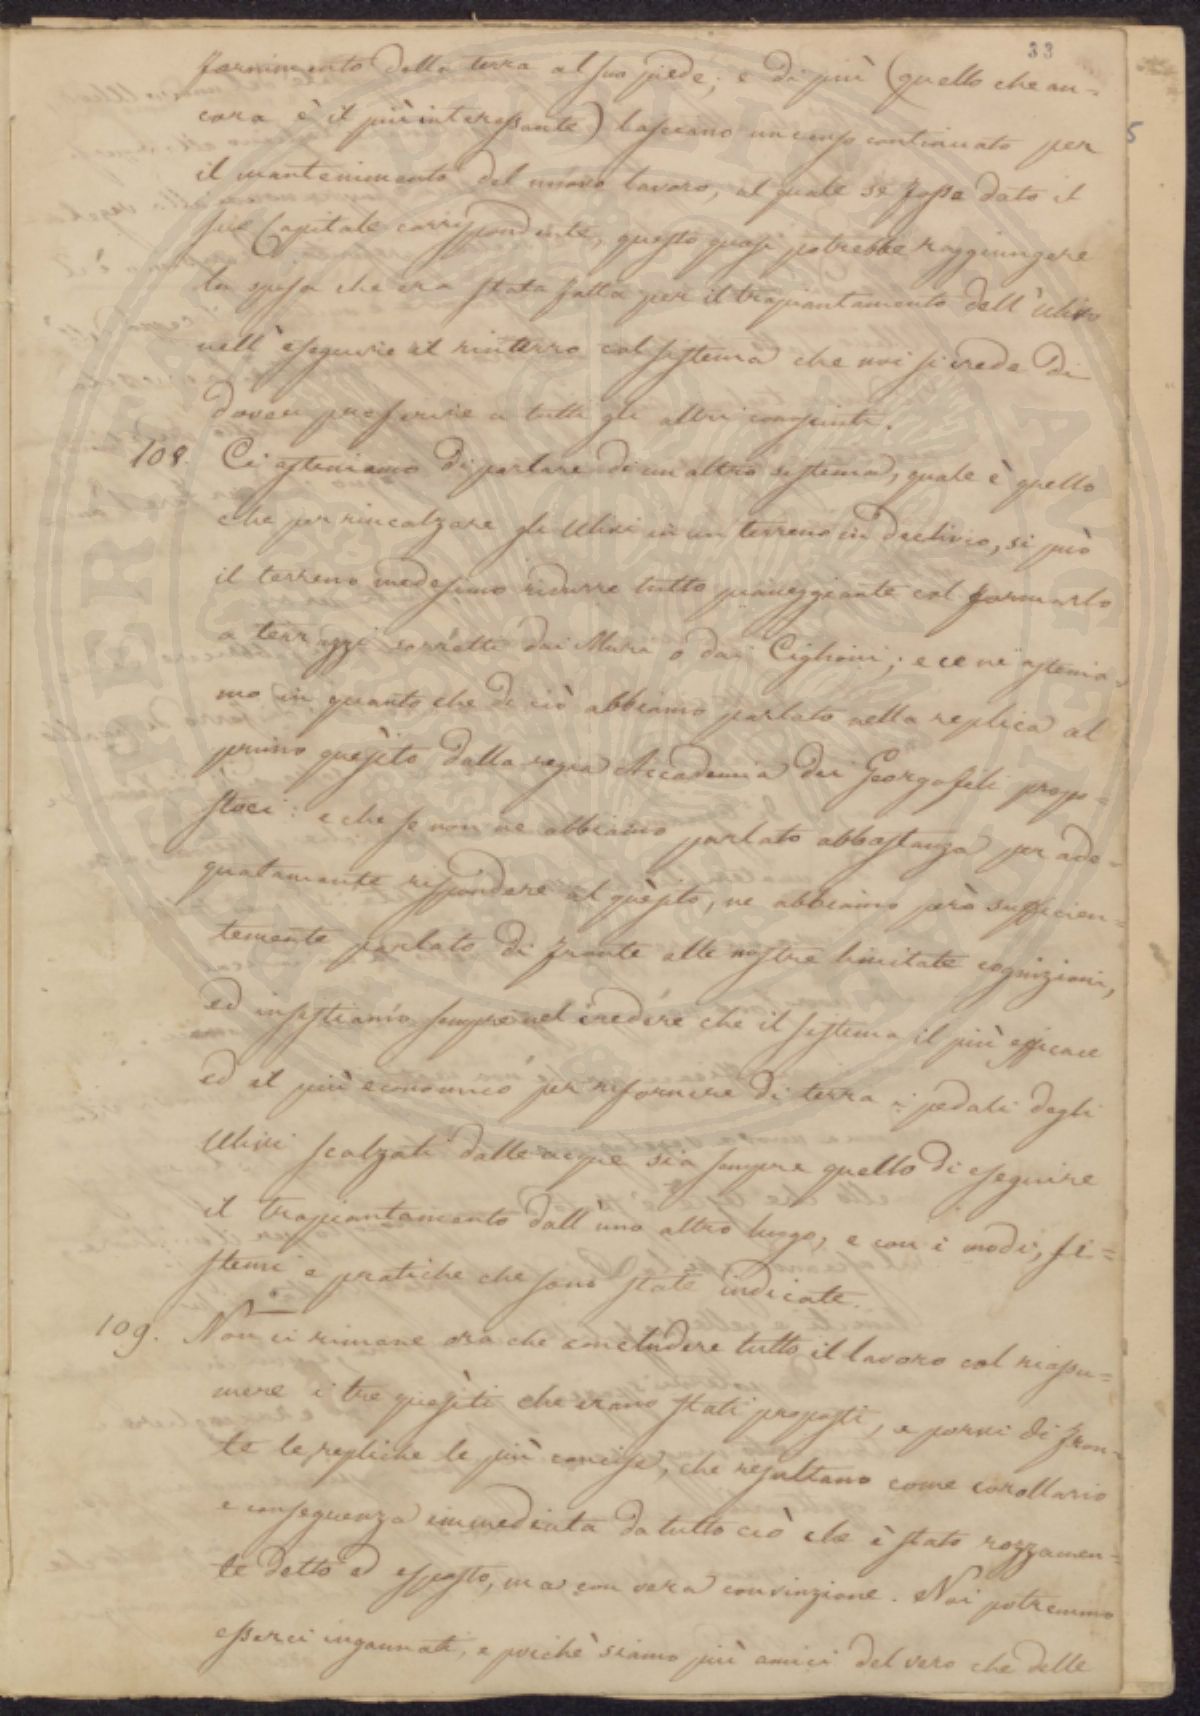 33
fornimento della terra al suo piede; e di più (quello che an=
cora è il più interessante) lasciano un censo continuato per
5
il mantenimento del nuovo lavoro, al quale se fosse dato il
suo Capitale corrispondente, questo quasi potrebbe raggiungere
la spesa che era stata fatta per il trapiantamento dell'Ulivo
nell'eseguire il rinterro col sistema che noi si crede di
dover preferire a tutti gli altri congeniti.
108. Ci asteniamo di parlare di un altro sistema, quale è quello
che per rincalzare gli Ulivi in un terreno in declivio, si può
il terreno medesimo ridurre tutto pianeggiante col formarlo
a terrazzi sorretti dai Muri o dai Ciglioni; e ce ne astenia=
mo in quanto che di ciò abbiamo parlato nella replica al
primo quesito dalla regia Accademia dei Georgofili propo=
stoci: e che se non ne abbiamo parlato abbastanza per ade=
quatamente rispondere al quesito, ne abbiamo però sufficien=
temente parlato di fronte alle nostre limitate cognizioni,
ed insistiamo sempre nel credere che il sistema il più efficace
ed il più economico per rifornire di terra i pedali degli
Ulivi scalzati dalle acque sia sempre quello di eseguire
il trapiantamento dall'uno altro luogo, e con i modi, si=
stemi e pratiche che sono state indicate.
109. Non ci rimane ora che concludere tutto il lavoro col riassu=
mere i tre quesiti che erano stati proposti, e porvi di fron=
te le repliche le più concise, che resultano come corollario
e conseguenza immediata da tutto ciò che è stato rozzamen=
te detto ed esposto, ma con vera convinzione. Noi potremmo
esserci ingannati, e poichè siamo più amici del vero che delle